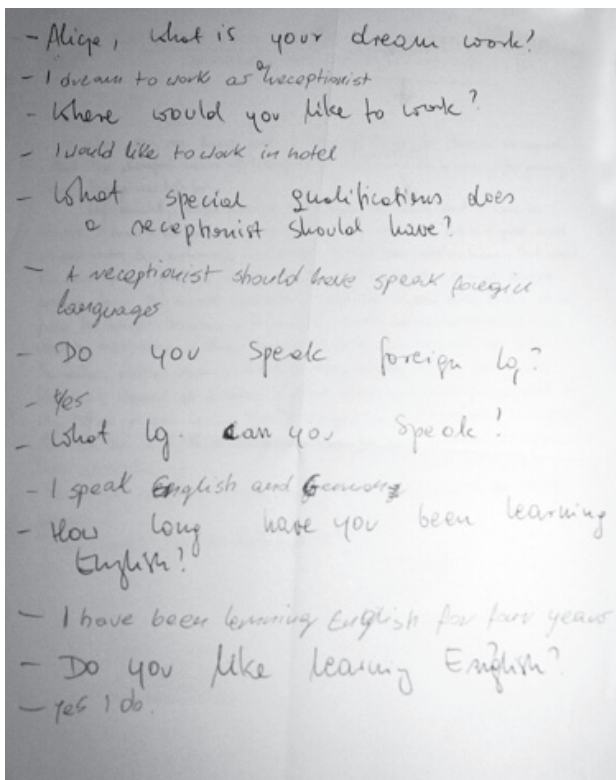 - Alicja, what is your dream work?
- I dream to work as a receptionist
- Where would you like to work?
- I would like to work in hotel
- What special qualifications does
a receptionist should have?
- A receptionist should have speak foregin
languages
- Do you speak foreign lg?
- Yes
- What lg. can you speak?
- I speak English and
- How long have you been learning
English?
- I have been learning English for four years
- Do you like learning English?
- yes I do.